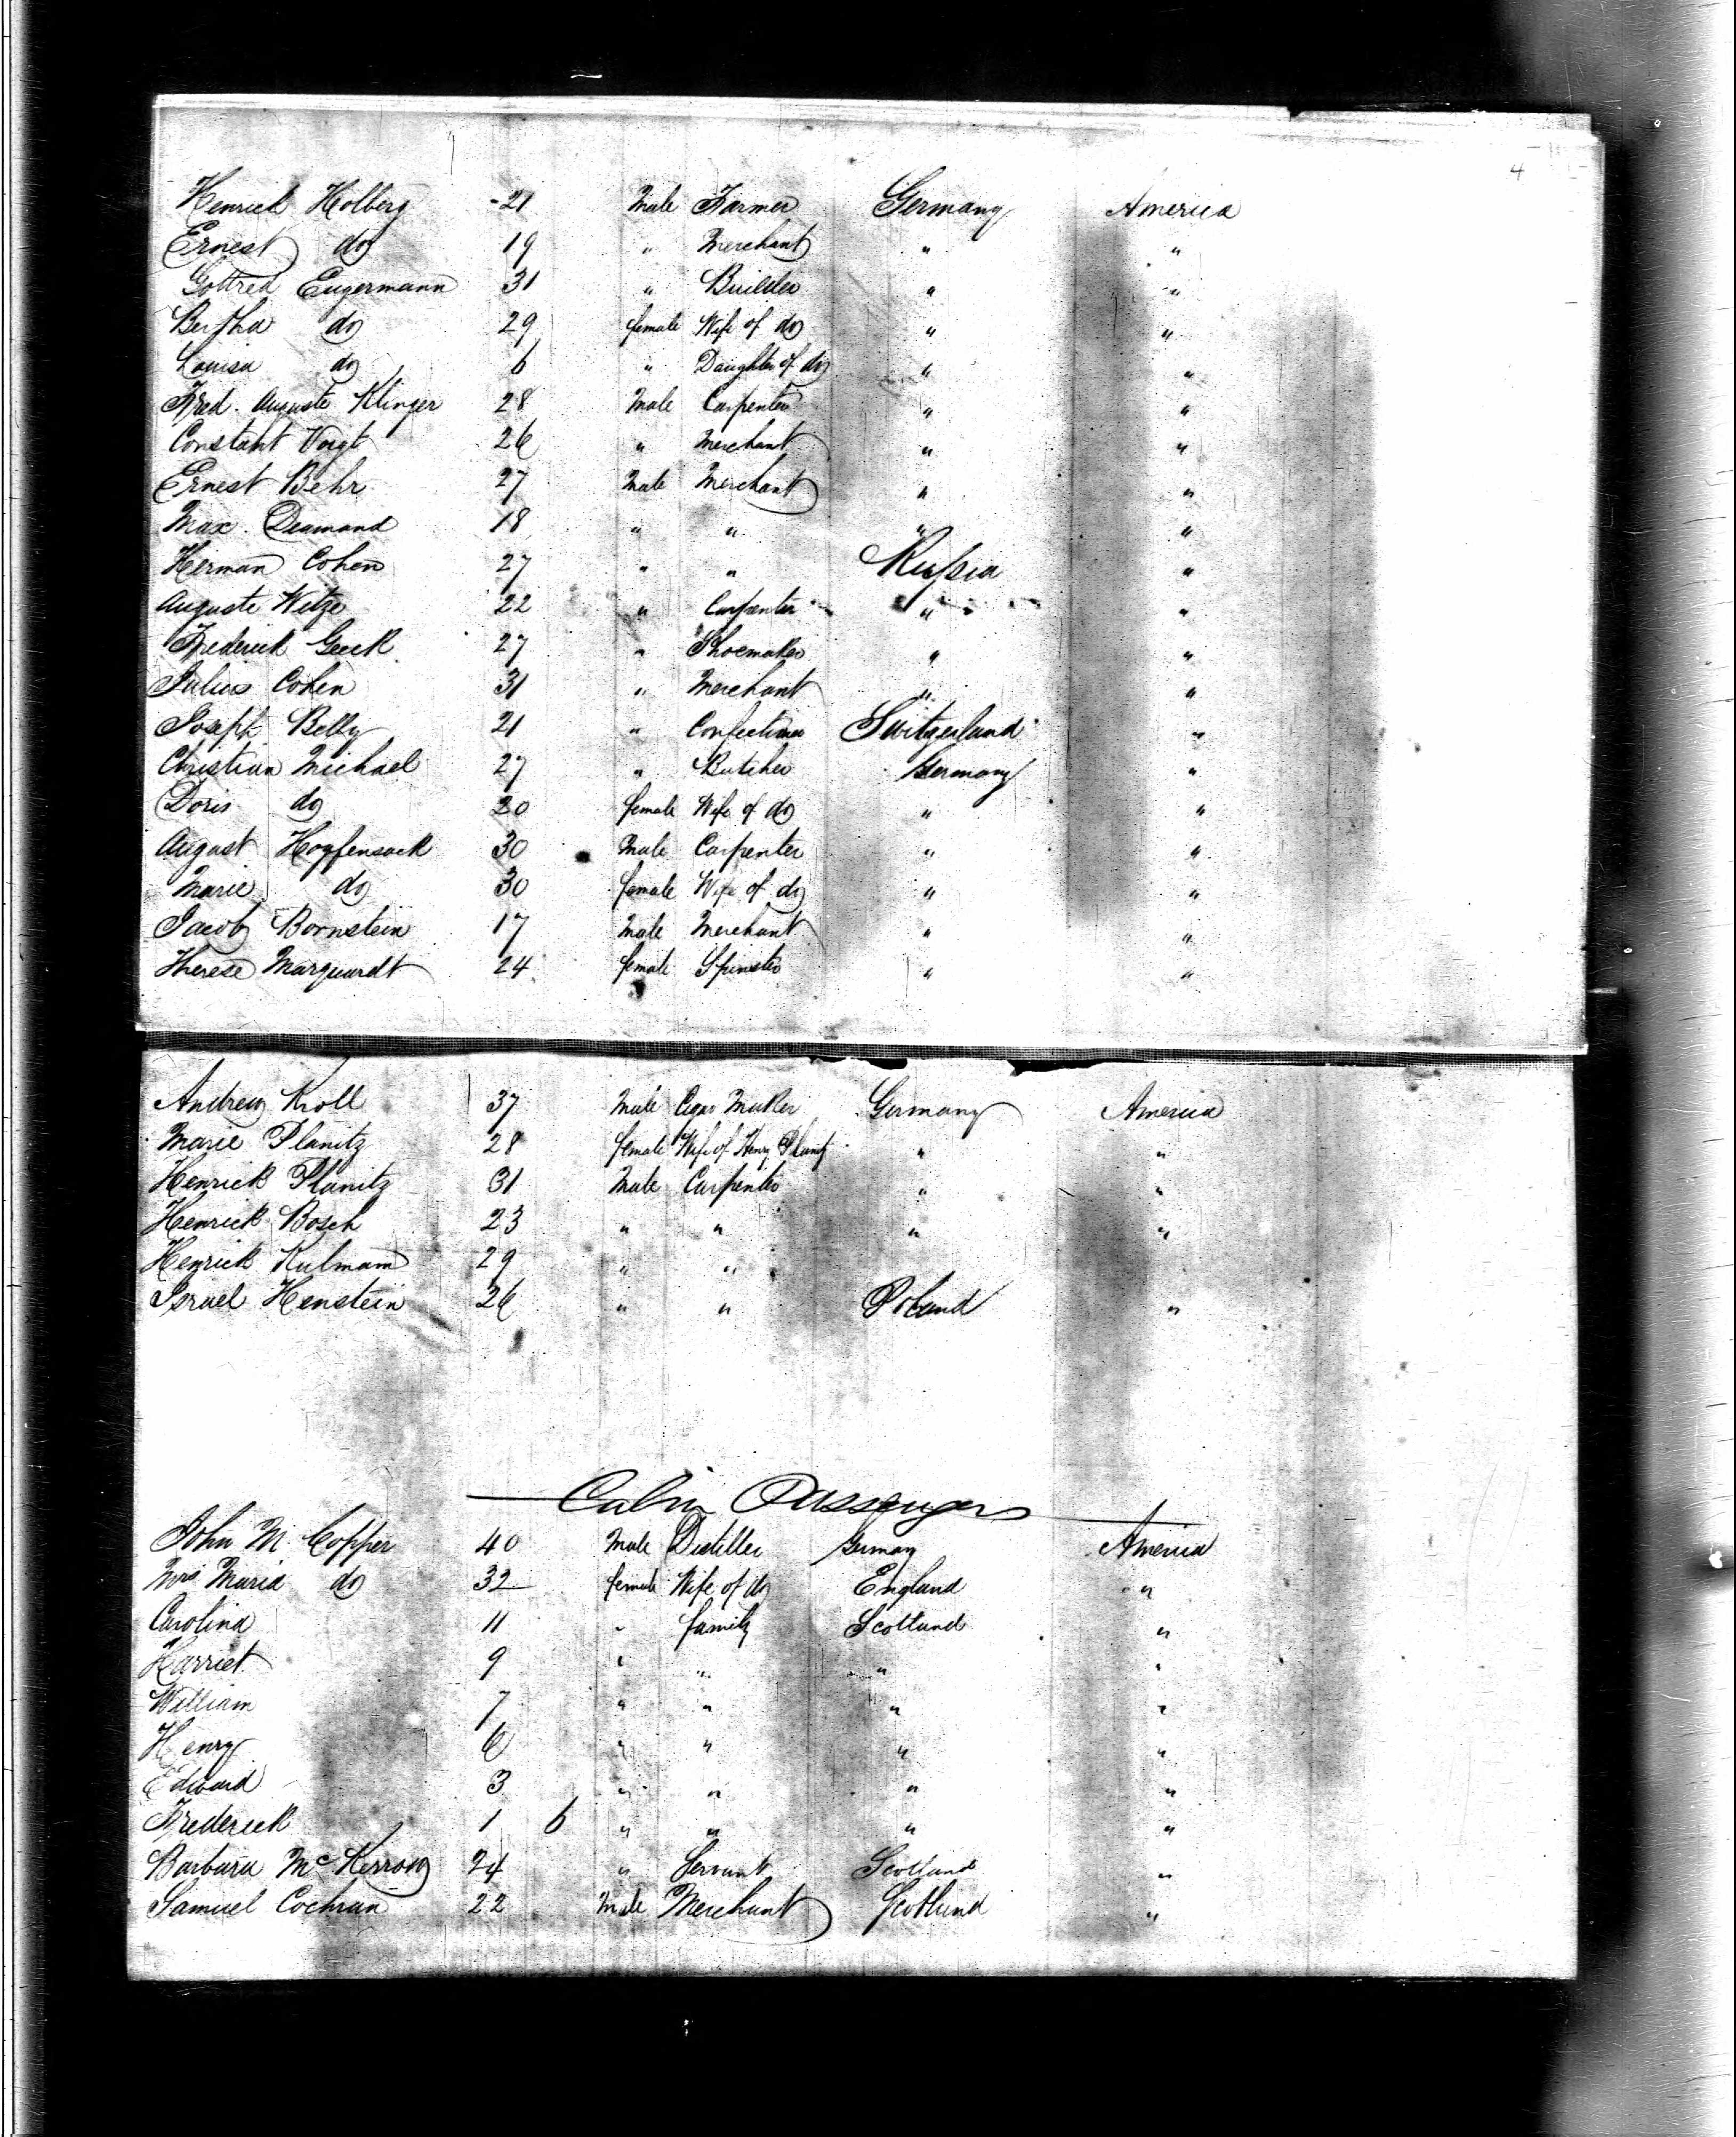 4
Henrich Holberg -21 Male Farmer Germany America
Ernest do 19 " Merchant " "
Gottred Eugermann 31 " Builder " "
Bertha do 29 female Wife of do " "
Louisa do 6 " Daughter of do " "
Fred. Auguste Klinger 28 Male Carpenter " "
Constant Voigt 26 " Merchant " "
Ernest Behr 27 Male Merchant " "
Max Deamand 18 " " " "
Herman Cohen 27 " " Russia "
Auguste Witze 22 " Carpenter " "
Frederick Geeck 27 " Shoemaker " "
Julius Cohen 31 " Merchant " "
Joseph Belly 21 " Confectioner Switzerland "
Christian Michael 27 " Butcher Germany "
Doris do 20 female Wife of do " "
August Hopfensack 30 Male Carpenter " "
Marie do 30 female Wife of do " "
Jacob Bornstein 17 Male Merchant " "
Therese Marquardt 24 female Spinster " "
Andrew Kroll 37 Male Cigar Maker Germany America
Marie Planitz 28 female Wife of Henry Planitz " "
Henrick Planitz 31 Male Carpenter " "
Henrick Bosch 23 " " " "
Henrick Kulmam 29 " "
Israel Henstein 26 " " Poland "
Cabin Passengers
John M. Copper 40 Male Distiller Germany America
Mrs Maria do 32 female Wife of do England "
Carolina 11 " family Scotland "
Harriet 9 " " " "
William 7 " " " "
Henry 6 " " " "
Edward 3 " " " "
Frederick 1 6 " " " "
Barbara McKerrow 24 " Servant Scotland "
Samuel Cochran 22 Male Merchant Scotland "